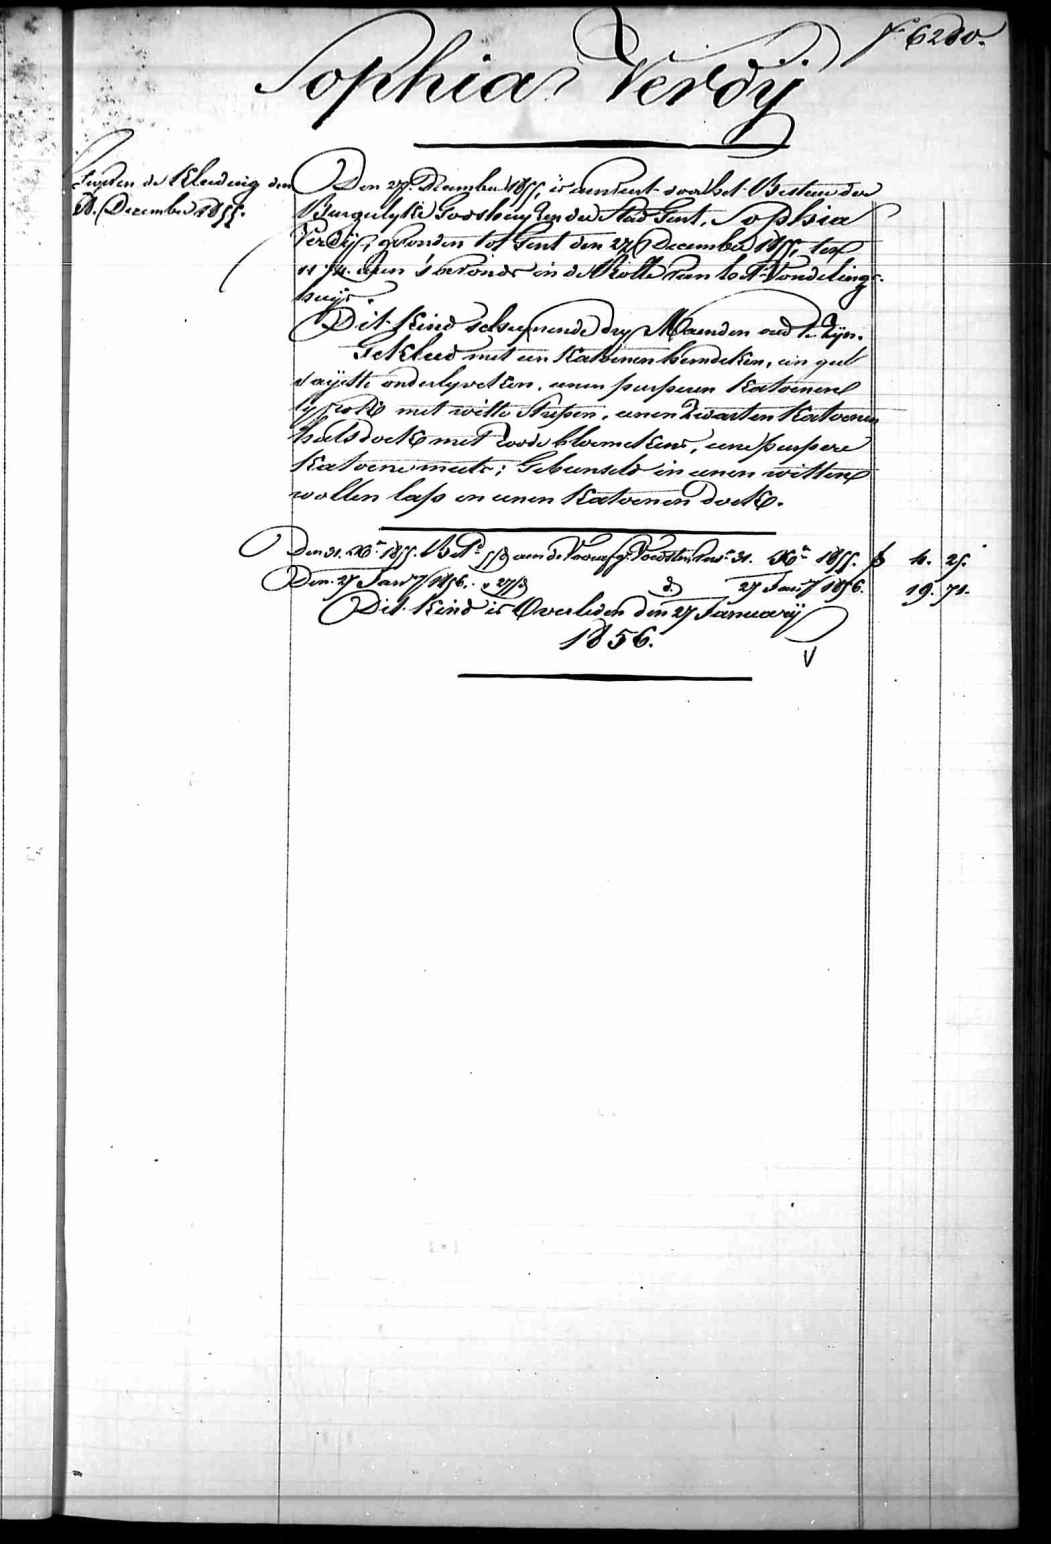 f° 6280.
Sophia Verdÿ
de Kleeding den
December 1855.
Den 27 December 1855, is aenveert door het Bestuer der
Burgelyke Godshuyzen der Stad Gent, Sophia
Verdÿ, gevonden tot Gent den 27 December 1855, ten
11 3/4 uren 's avonds in de Rolle van het Vondelings-
huys.
Dit kind schynende dry Maenden oud te zyn.
Gekleed met een katoenen hemdeken, een gel
sayette onderlyveken, eenen purperen katoenen
lyfrok met witte strepen, eenen zwarten katoenen
halsdoek met roode bloemekens, eene purpere
katoene muts; Gebunseld in eenen witten
wollen lap en eenen katoenen doek.
Den 31. Xber 1855. aen de 31. Xber 1855. 4. 25.
Den 27 Janry 1856. " 27 d° 27 Janry 1856. 19. 71.
Dit kind is Overleden den 27 Januarÿ
1856.
V